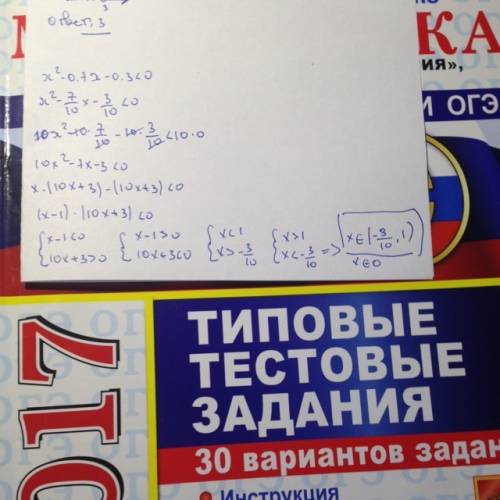 3
ответ: 3
x²-0.7x-0.3<0
x²-7/10x-3/10<0
10x²-10·7/10-10·3/10<10·0
10x²-7x-3<0
x·(10x+3)-(10x+3)<0
(x-1)·(10x+3)<0
{x-1<0 {x-1>0 {x<1 {x>1 => x∈(-3/10,1)
{10x+3>0 {10x+3<0 {x>-3/10 {x<-3/10 x∈∅
М КА
ия»,
И ОГЭ
2017
ТИПОВЫЕ
ТЕСТОВЫЕ
ЗАДАНИЯ
30 вариантов задан
Инструкция